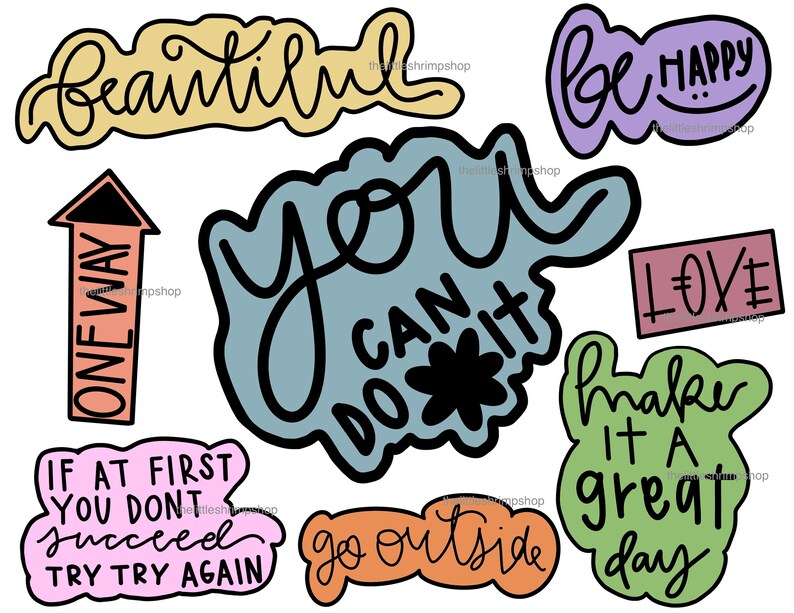 beautiful
thelittleshrimpshop
be HAPPY
thelittleshrimpshop
you
thelittleshrimpshop
CAN
DO IT
ONE WAY
thelittleshrimpshop
LOVE
thelittleshrimpshop
make
IT A
great
day
thelittleshrimpshop
IF AT FIRST
YOU DONT
succeed
TRY TRY AGAIN
thelittleshrimpshop
go outside
thelittleshrimpshop